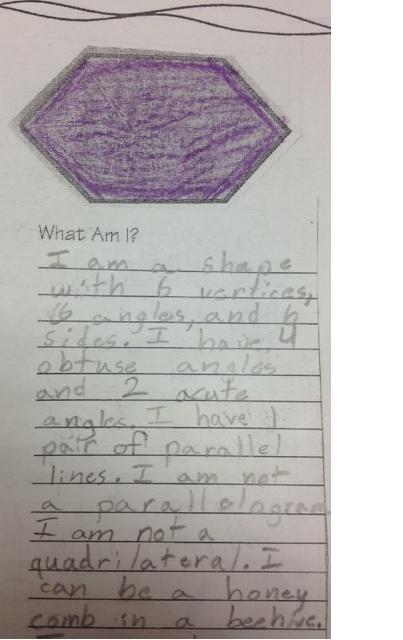 What Am I?
I am a shape
with 6 vertices,
6 angles, and 6
sides. I have 4
obtuse angles
and 2 acute
angles. I have 1
pair of parallel
lines. I am not
a parallelogram.
I am not a
quadrilateral. I
can be a honey
comb in a beehive.